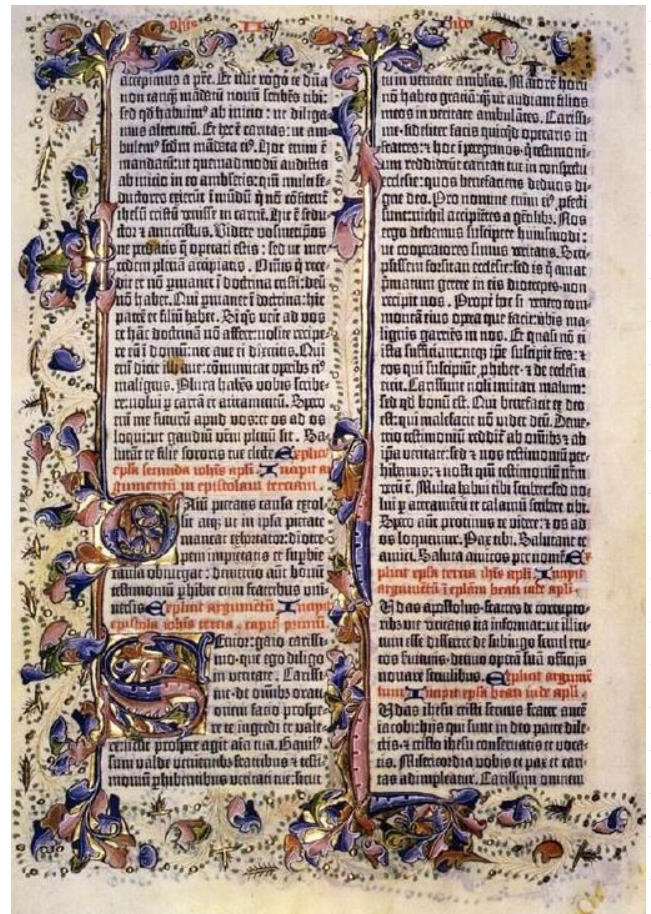 ohis II
Jude
accepimus a pr̄e. Et nūc rogo te dūa
non tanq̄ mādatū nouū scribēs tibi:
sed qd habuimꝰ ab inicio: ut diliga-
mus alterutrū. Et hec ē caritas: ut am-
bulemꝰ sedm mādata eiꝰ. Hoc enim ē
mandatū: ut quemadmodū audistis
ab inicio in eo ambuletis: qm̄ multi se-
ductores exierūt ī mūdū q̄ nō cōfitent̄
ihesū cristū venisse in carnē. Hic ē sedu-
ctor ⁊ anticristus. Videte vosmetip̄os
ne perdatis q̄ operati estis: sed ut mer-
cedem plenā accipiatis. Om̄is q̄ rece-
dit et nō p̄manet ī doctrina cristi: deū
nō habet. Qui p̄manet ī doctrina: hic
patrē et filiū habet. Si q̄s venit ad vos
et hāc doctrinā nō affert: nolite recipe-
re eū ī domū: nec aue ei dixeritis. Qui
em̄ dicit illi aue: cōmunicat operibꝰ eiꝰ
malignis. Plura habēs vobis scribe-
re: nolui p̄ cartā et atramentū. Spero
em̄ me futurū apud vos: et os ad os
loqui: ut gaudiū vr̄m plenū sit. Sa-
lutāt te filii sororis tue electe. Explicit
epl̄a secunda ioh̄is apl̄i. Incipit ar-
gumentū in epistolam terciam.
Gaiū pietatis causa extol-
lit atq̨ ut in ipsa pietate
maneat exhortatur: diotre-
pem impietatis et superbie
causa obiurgat: demetrio aūt bonū
testimoniū p̄hibet cum fratribus vni-
uersis. Explicit argumētū. Incipit
epistola ioh̄is tercia. capitl̄ primū.
Senior: gaio carissi-
mo: que ego diligo
in veritate. Carissi-
me: de om̄ibꝰ orati-
onem facio prospe-
re te īgredi et vale-
re: sicut prospere agit aīa tua. Gauisꝰ
sum valde venientibꝰ fratribus ⁊ testi-
moniū p̄hibentibus veritati tue: sicut
tu in veritate ambulas. Maiorē horū
nō habeo gratiā: q̄ ut audiam filios
meos in veritate ambulātes. Carissi-
me: fideliter facis quicq̄d operaris in
fratres: ⁊ hoc ī peregrinos: q̄ testimoni-
um reddiderūt caritati tue in conspectu
ecclesie: quos benefaciens deducis di-
gne deo. Pro nomine enim eiꝰ p̄fecti
sunt: nichil accipiētes a gētibꝰ. Nos
ergo debemus suscipere huiusmodi:
ut cooperatores simus veritatis. Scri-
psissem forsitan ecclesie: sed is q̄ amat
p̄matum gerere in eis diotrepes: non
recipit nos. Propt̄ hoc si venero com-
monebo eius opera que facit: vbis ma-
lignis garriēs in nos. Et quasi nō ei
ista sufficiant: neq̨ ip̄e suscipit fr̄es: ⁊
eos qui suscipiūt, p̄hibet: ⁊ de ecclesia
eicit. Carissime noli imitari malum:
sed qd bonū est. Qui benefacit ex deo
est: qui malefacit nō videt deū. Deme-
trio testimoniū reddit̄ ab om̄ibꝰ ⁊ ab
ip̄a veritate: sed ⁊ nos testimoniū per-
hibemus: ⁊ nosti qm̄ testimoniū nr̄m
verū ē. Multa habui tibi scribere: sed no-
lui p̄ atramētū et calamū scribere tibi.
Spero aūt protinus te videre: ⁊ os ad
os loquemur. Pax tibi. Salutant te
amici. Saluta amicos per nomē. Ex-
plicit epl̄a tercia ioh̄is apl̄i. Incipit
argumētū ī epl̄am beati iude apl̄i.
Iudas apostolus fratres de corrupto-
ribꝰ vie veritatis ita informat: ut illici-
tum esse dissereret de subiugo semel eru-
tos
nouare seculibus. Explicit argumē-
tum. Incipit epl̄a beati iude apl̄i.
Iudas ihesu cristi seruus frater autē
iacobi: hijs qui sunt in deo patre dile-
ctis: ⁊ cristo ihesu conseruatis et voca-
tis. Misericordia vobis et pax et cari-
tas adimpleatur. Carissimi omnem